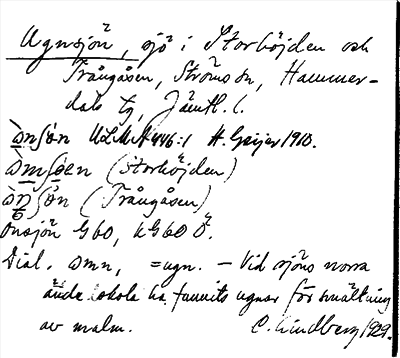 Ugnsjön, sjö i Storhöjden och
Trångåsen, Ströms sn, Hammer-
dals tg, Jämtl. l.
ωnʃön ULMA 446:1 H. Geijer 1910.
ωmʃøen (Storhöjden)
ωnʃön (Trångåsen)
Onsjön G 60, kG 60 Ö
Dial. ωmn, =ugn. – Vid sjöns norra
ände skola ha funnits ugnar för smältning
av malm. C. Lindberg 1929.